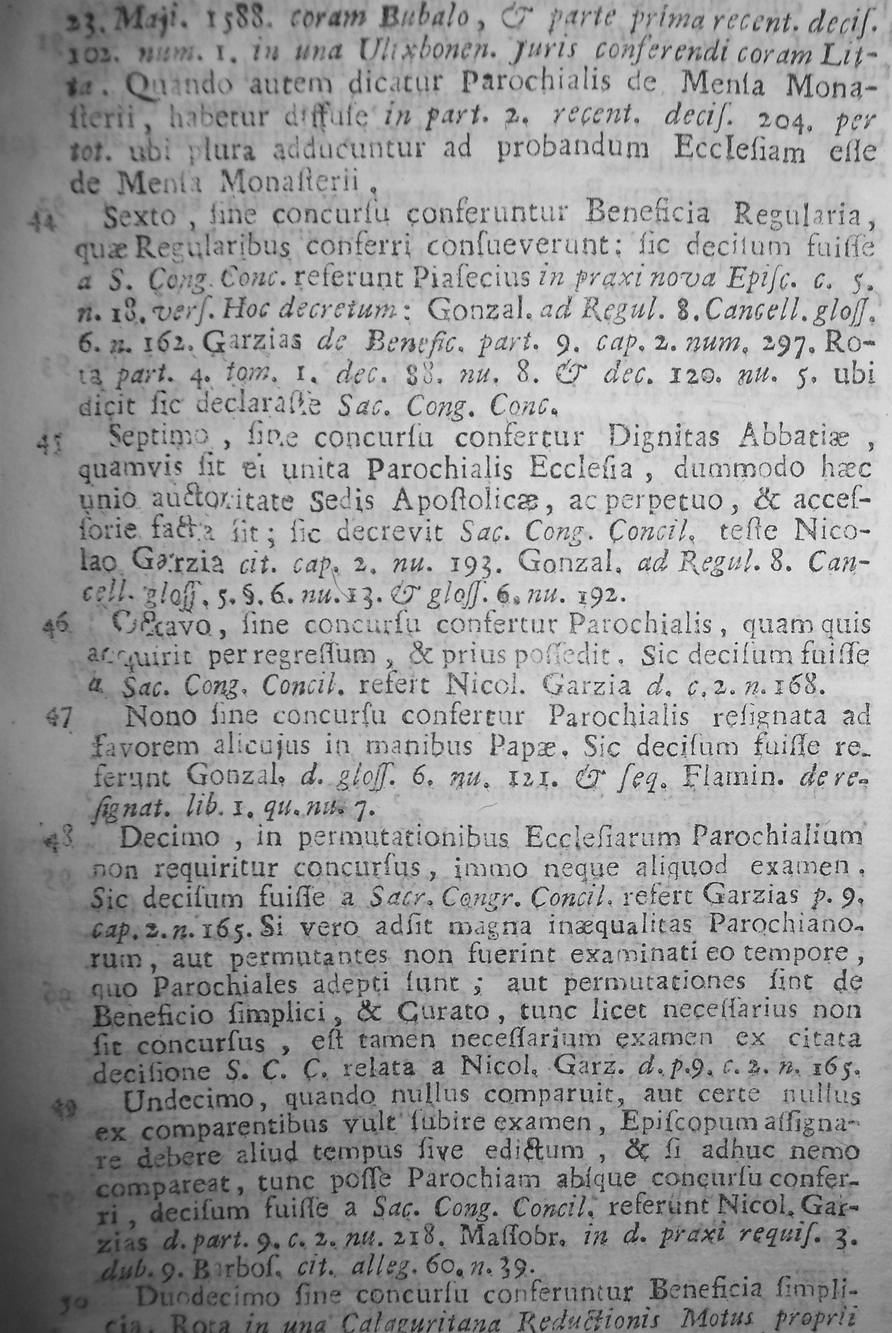 23. Maji. 1588. coram Bubalo, & parte prima recent. deciſ.
102. num. 1. in una Ulixbonen. Juris conferendi coram Lit-
ta. Quando autem dicatur Parochialis de Menſa Mona-
ſterii, habetur diffuſe in part. 2. recent. deciſ. 204. per
tot. ubi plura adducuntur ad probandum Eccleſiam eſſe
de Menſa Monaſterii.
44 Sexto, ſine concurſu conferuntur Beneficia Regularia,
quæ Regularibus conferri conſueverunt; ſic deciſum fuiſſe
a S. Cong. Conc. referunt Piaſecius in praxi nova Epiſc. c. 5.
n. 18. verſ. Hoc decretum: Gonzal. ad Regul. 8. Cancell. gloſſ.
6. n. 162. Garzias de Benefic. part. 9. cap. 2. num. 297. Ro-
ta part. 4. tom. 1. dec. 88. nu. 8. & dec. 120. nu. 5. ubi
dicit ſic declaraſſe Sac. Cong. Conc.
45 Septimo, ſine concurſu confertur Dignitas Abbatiæ,
quamvis ſit ei unita Parochialis Eccleſia, dummodo hæc
unio auctoritate Sedis Apoſtolicæ, ac perpetuo, & acceſ-
ſorie facta ſit; ſic decrevit Sac. Cong. Concil. teſte Nico-
lao Garzia cit. cap. 2. nu. 193. Gonzal. ad Regul. 8. Can-
cell. gloſſ. 5. §. 6. nu. 13. & gloſſ. 6. nu. 192.
46 Octavo, ſine concurſu confertur Parochialis, quam quis
acquirit per regreſſum, & prius poſſedit. Sic deciſum fuiſſe
a Sac. Cong. Concil. refert Nicol. Garzia d. c. 2. n. 168.
47 Nono ſine concurſu confertur Parochialis reſignata ad
favorem alicujus in manibus Papæ. Sic deciſum fuiſſe re-
ferunt Gonzal. d. gloſſ. 6. nu. 121. & ſeq. Flamin. de re-
ſignat. lib. 1. qu. nu. 7.
48 Decimo, in permutationibus Eccleſiarum Parochialium
non requiritur concurſus, immo neque aliquod examen.
Sic deciſum fuiſſe a Sacr. Congr. Concil. refert Garzias p. 9.
cap. 2. n. 165. Si vero adſit magna inæqualitas Parochiano-
rum, aut permutantes non fuerint examinati eo tempore,
quo Parochiales adepti ſunt; aut permutationes ſint de
Beneficio ſimplici, & Curato, tunc licet neceſſarius non
ſit concurſus, eſt tamen neceſſarium examen ex citata
deciſione S. C. C. relata a Nicol. Garz. d. p. 9. c. 2. n. 165.
49 Undecimo, quando nullus comparuit, aut certe nullus
ex comparentibus vult ſubire examen, Epiſcopum aſſigna-
re debere aliud tempus ſive edictum, & ſi adhuc nemo
compareat, tunc poſſe Parochiam abſque concurſu confer-
ri, deciſum fuiſſe a Sac. Cong. Concil. referunt Nicol. Gar-
zias d. part. 9. c. 2. nu. 218. Maſſobr. in d. praxi requiſ. 3.
dub. 9. Barboſ. cit. alleg. 60. n. 39.
50 Duodecimo ſine concurſu conferuntur Beneficia ſimpli-
cia. Rota in una Calaguritana Reductionis Motus proprii